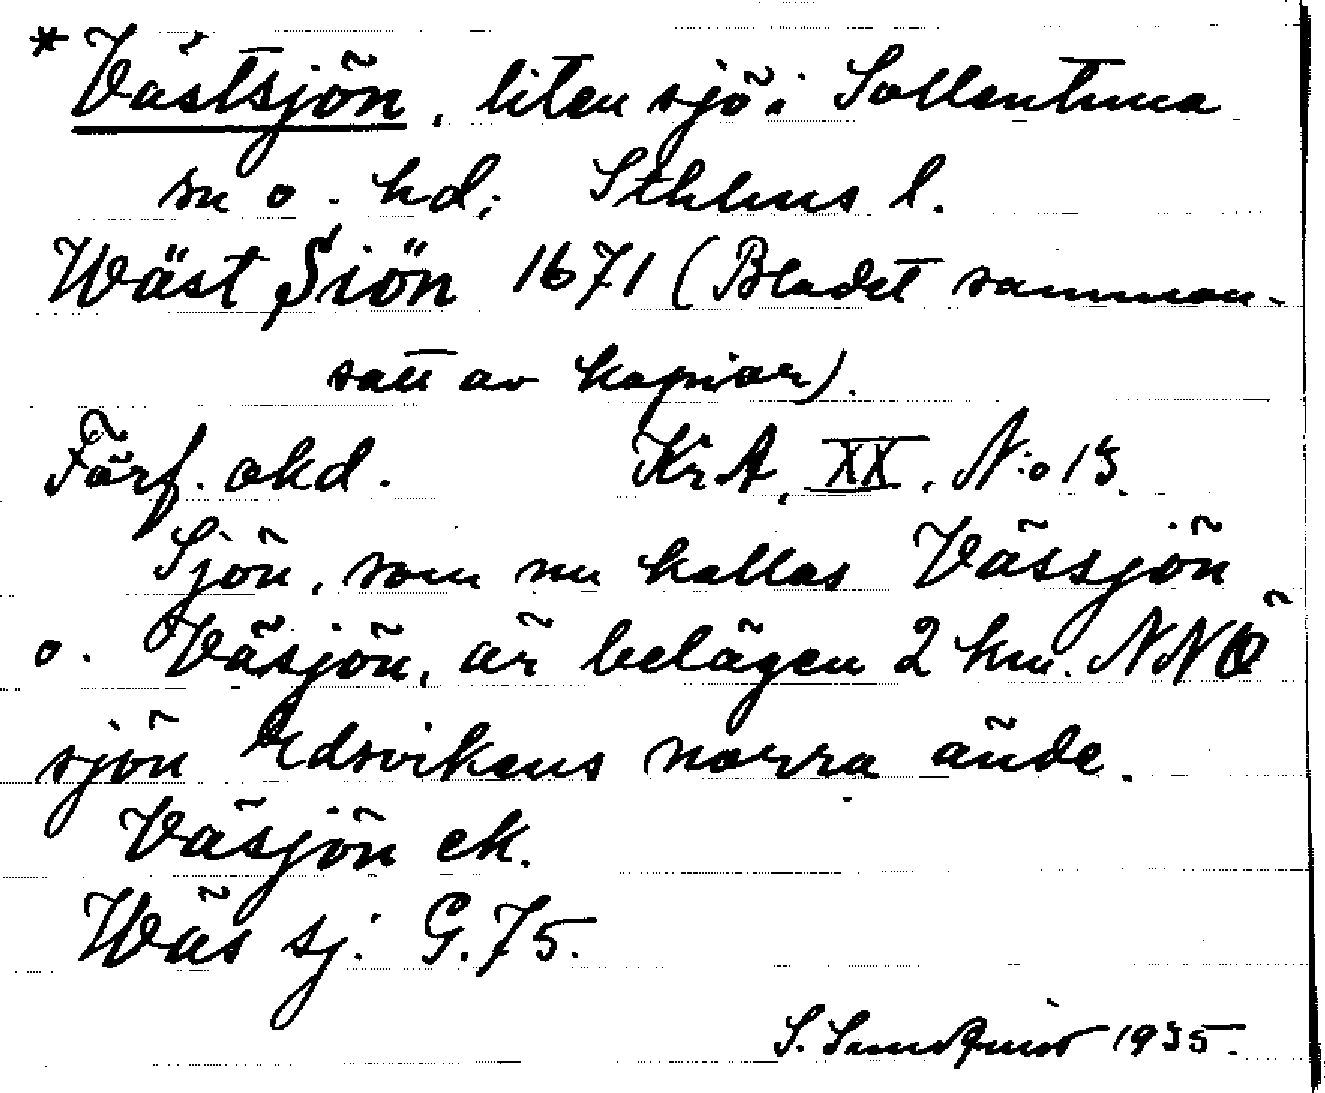 *Västsjön, liten sjö i Sollentuna
sn o. hd; Sthlms l.
Wäst Siön 1671 (Bladet samman-
satt av kopior).
Förf. okd. Kr.A. XX. N:o 13.
Sjön, som nu kallas Vässjön
o. Väsjön, är belägen 2 km. NNÖ
sjön Edsvikens norra ände.
Väsjön ek.
Wäs sj. G.75.
S. Sundquist 1935.